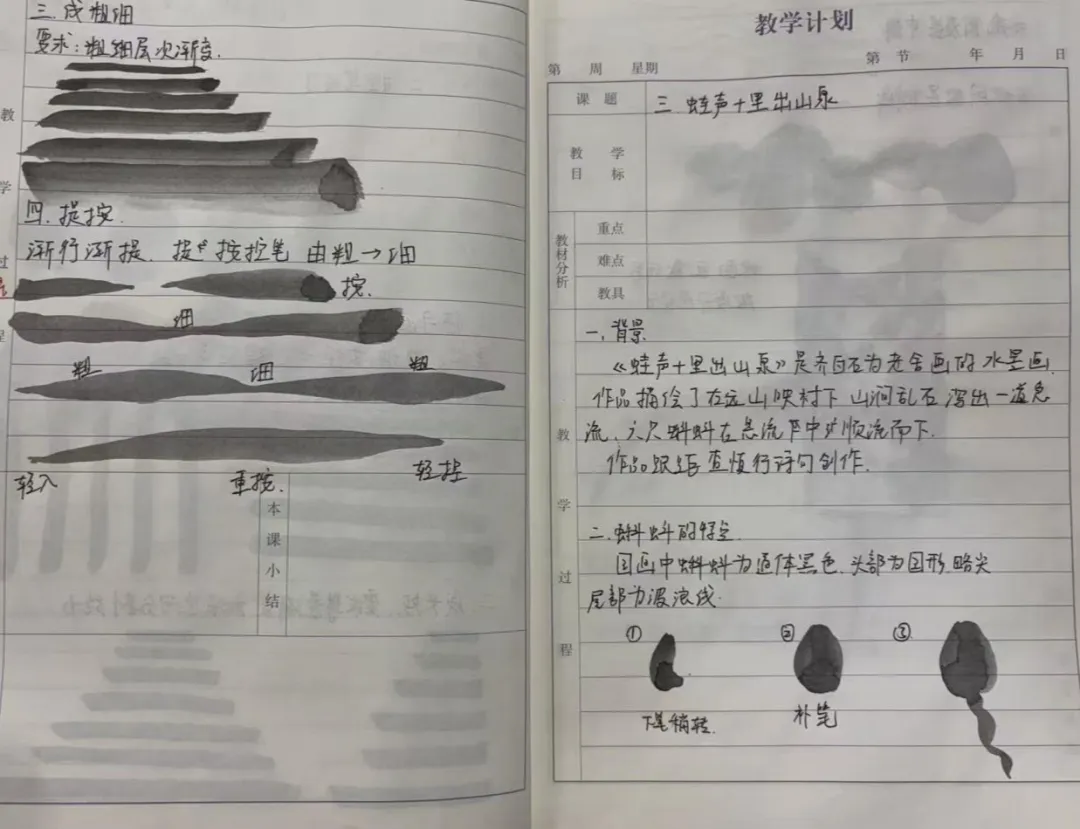 三.成粗细
要求:粗细层次渐变.
四.提按.
渐行渐提. 按控笔 由粗→细
按.
细
粗 细 粗
轻入 重按. 轻提
教
学
过
程
本课小结
教学计划
第 周 星期 第 节 年 月 日
课题 三.蛙声十里出山泉
教学目标
教材分析
重点
难点
教具
一.背景.
《蛙声十里出山泉》是齐白石为老舍画的水墨画.
作品描绘了在远山映衬下 山涧乱石 泻出一道急
流.六只蝌蚪在急流中 顺流而下.
作品 查慎行诗句创作.
二.蝌蚪的特点.
国画中蝌蚪为通体黑色.头部为圆形.略尖
尾部为波浪线.
① ② ③
下笔稍转. 补笔
教
学
过
程